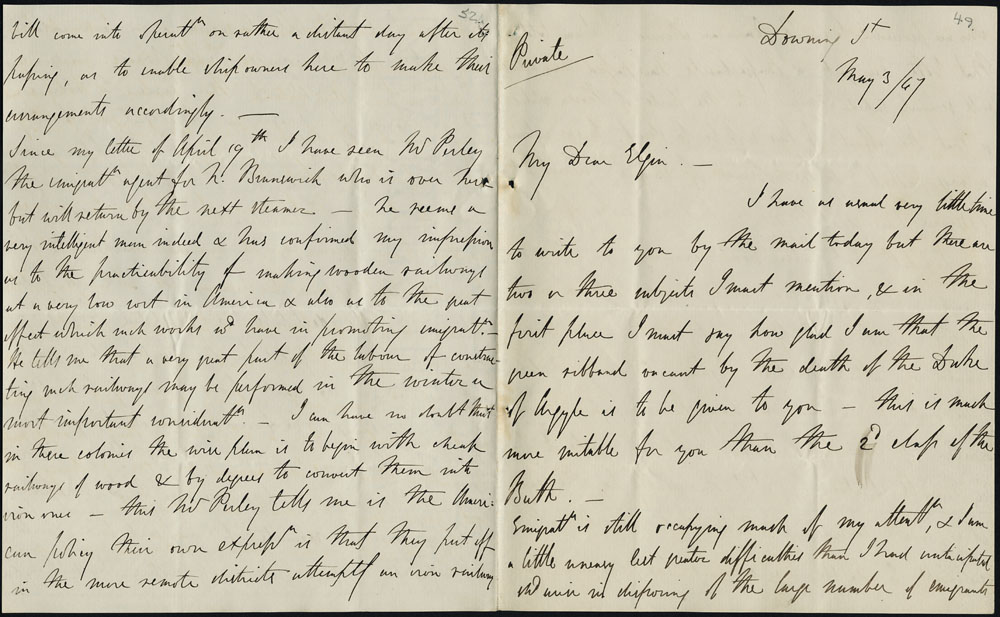 52.
bill come into operatn on rather a distant day after its
passing, as to enable shipowners here to make their
arrangements accordingly. —
Since my letter of April 19th I have seen Mr Perley
the emigratn agent for N. Brunswick who is over here
but will return by the next steamer — he seems a
very intelligent man indeed & has confirmed my impression
as to the practicability of making wooden railways
at a very low cost in America & also as to the great
effect which such works wd have in promoting emigratn. —
He tells me that a very great part of the labour of construc-
ting such railways may be performed in the winter a
most important considerat.n — I can have no doubt that
in these colonies the wise plan is to begin with cheap
railways of wood & by degrees to convert them into
iron ones — this Mr Perley tells me is the Ameri-
can policy their own expressn is that they put off
in the more remote districts attempts an iron railway
49.
Private
Downing St
May 3/47
My Dear Elgin. —
I have as usual very little time
to write to you by the mail today but there are
two or three subjects I must mention, & in the
first place I must say how glad I am that the
green ribband vacant by the death of the Duke
of Argyle is to be given to you — this is much
more suitable for you than the 2d class of the
Bath. —
Emigratn is still occupying much of my attentn, & I am
a little uneasy lest greater difficulties than I had anticipated
shd arise in disposing of the large number of emigrants